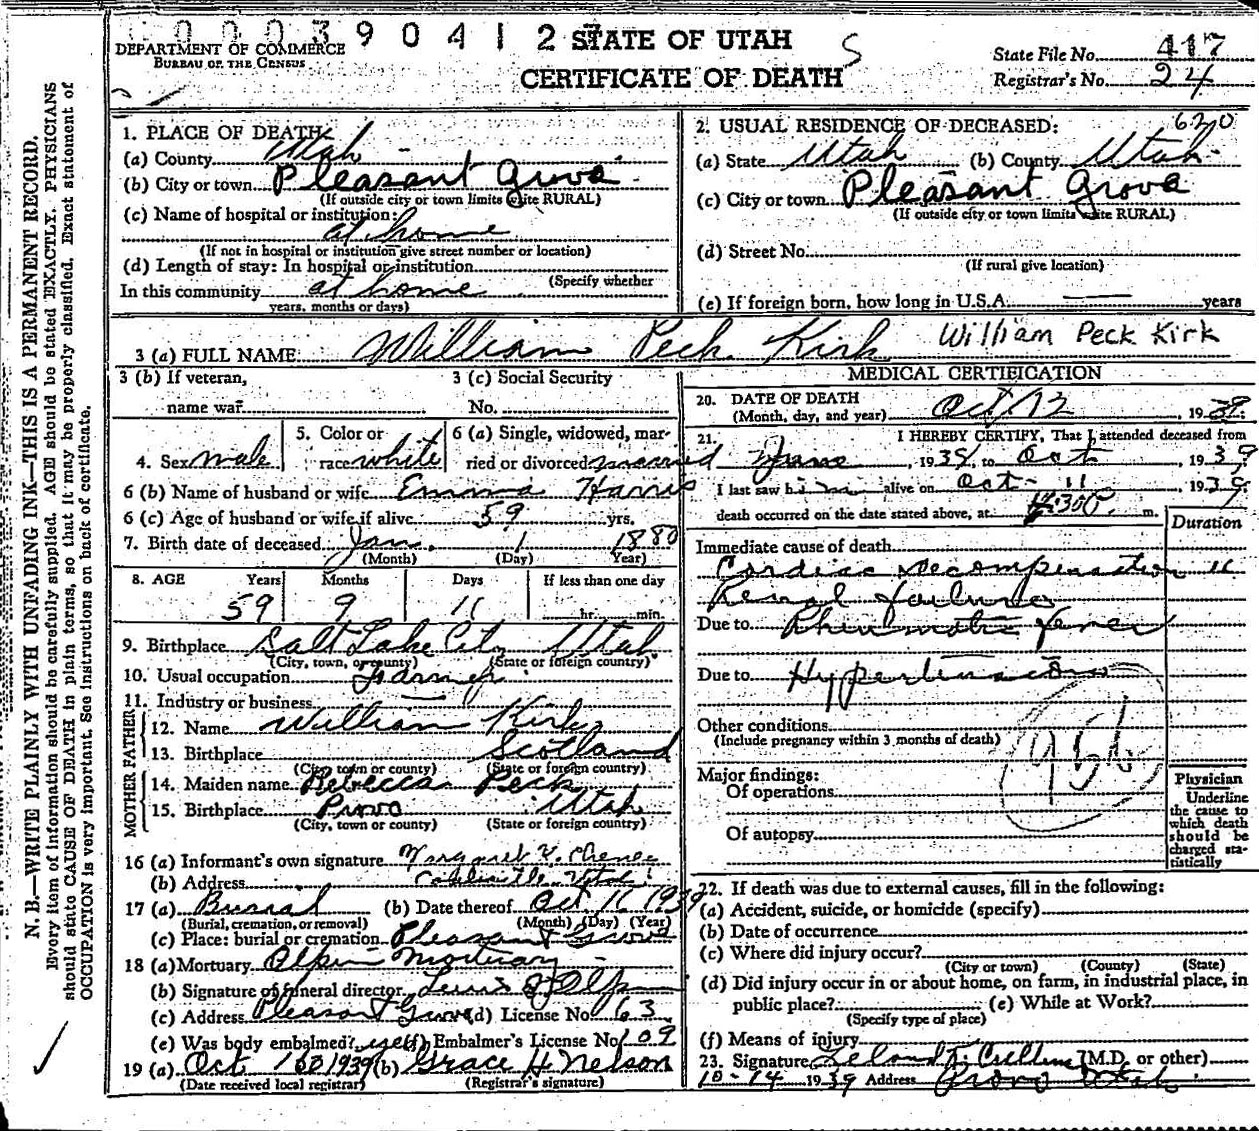 000390412 STATE OF UTAH
DEPARTMENT OF COMMERCE
BUREAU OF THE CENSUS
CERTIFICATE OF DEATH
S
State File No. 417
Registrar's No. 24
N. B.—WRITE PLAINLY WITH UNFADING INK—THIS IS A PERMANENT RECORD.
Every item of information should be carefully supplied. AGE should be stated EXACTLY. PHYSICIANS
should state CAUSE OF DEATH in plain terms, so that it may be properly classified. Exact statement of
OCCUPATION is very important. See instructions on back of certificate.
1. PLACE OF DEATH:
(a) County Utah
(b) City or town Pleasant Grove
(If outside city or town limits write RURAL)
(c) Name of hospital or institution:
at home
(If not in hospital or institution give street number or location)
(d) Length of stay: In hospital or institution
(Specify whether
In this community at home
years, months or days)
2. USUAL RESIDENCE OF DECEASED: 620
(a) State Utah (b) County Utah
(c) City or town Pleasant Grove
(If outside city or town limits write RURAL)
(d) Street No.
(If rural give location)
(e) If foreign born, how long in U.S.A. years
3 (a) FULL NAME: William Peck Kirk William Peck Kirk
3 (b) If veteran,
name war
3 (c) Social Security
No.
4. Sex male
5. Color or
race white
6 (a) Single, widowed, mar-
ried or divorced married
6 (b) Name of husband or wife Emma Harris
6 (c) Age of husband or wife if alive 59 yrs.
7. Birth date of deceased Jan. 1 1880
(Month) (Day) Year)
8. AGE Years Months Days If less than one day
59 9 11 hr. min.
9. Birthplace Salt Lake City Utah
(City, town, or county) (State or foreign country)
10. Usual occupation Farmer
11. Industry or business
FATHER
12. Name William Kirk
13. Birthplace Scotland
(City, town or county) (State or foreign country)
MOTHER
14. Maiden name Rebecca Peck
15. Birthplace Provo Utah
(City, town or county) (State or foreign country)
16 (a) Informant's own signature Margaret K.
(b) Address Utah
17 (a) Burial (b) Date thereof Oct 1939
(Burial, cremation, or removal) (Month) (Day) (Year)
(c) Place: burial or cremation Pleasant Grove
18 (a) Mortuary Olpin Mortuary
(b) Signature of funeral director Olpin
(c) Address Pleasant Grove (d) License No. 63
(e) Was body embalmed? yes (f) Embalmer's License No. 109
19 (a) Oct 1939 (b) Grace H. Nelson
(Date received local registrar) (Registrar's signature)
MEDICAL CERTIFICATION
20. DATE OF DEATH
(Month, day, and year) Oct 12, 1939
21. I HEREBY CERTIFY, That I attended deceased from
June, 1939, to Oct, 1939
I last saw him alive on Oct- 11, 1939,
death occurred on the date stated above, at m.
Duration
Immediate cause of death
Cardiac decompensation
Renal failure
Due to Rheumatic fever
Due to Hypertension
Other conditions
(Include pregnancy within 3 months of death)
Major findings:
Of operations
Of autopsy
Physician
Underline
the cause to
which death
should be
charged sta-
tistically
22. If death was due to external causes, fill in the following:
(a) Accident, suicide, or homicide (specify)
(b) Date of occurrence
(c) Where did injury occur?
(City or town) (County) (State)
(d) Did injury occur in or about home, on farm, in industrial place, in
public place? (e) While at Work?
(Specify type of place)
(f) Means of injury
23. Signature Leland K. Cullimore (M.D. or other)
10-14 1939 Address Provo Utah